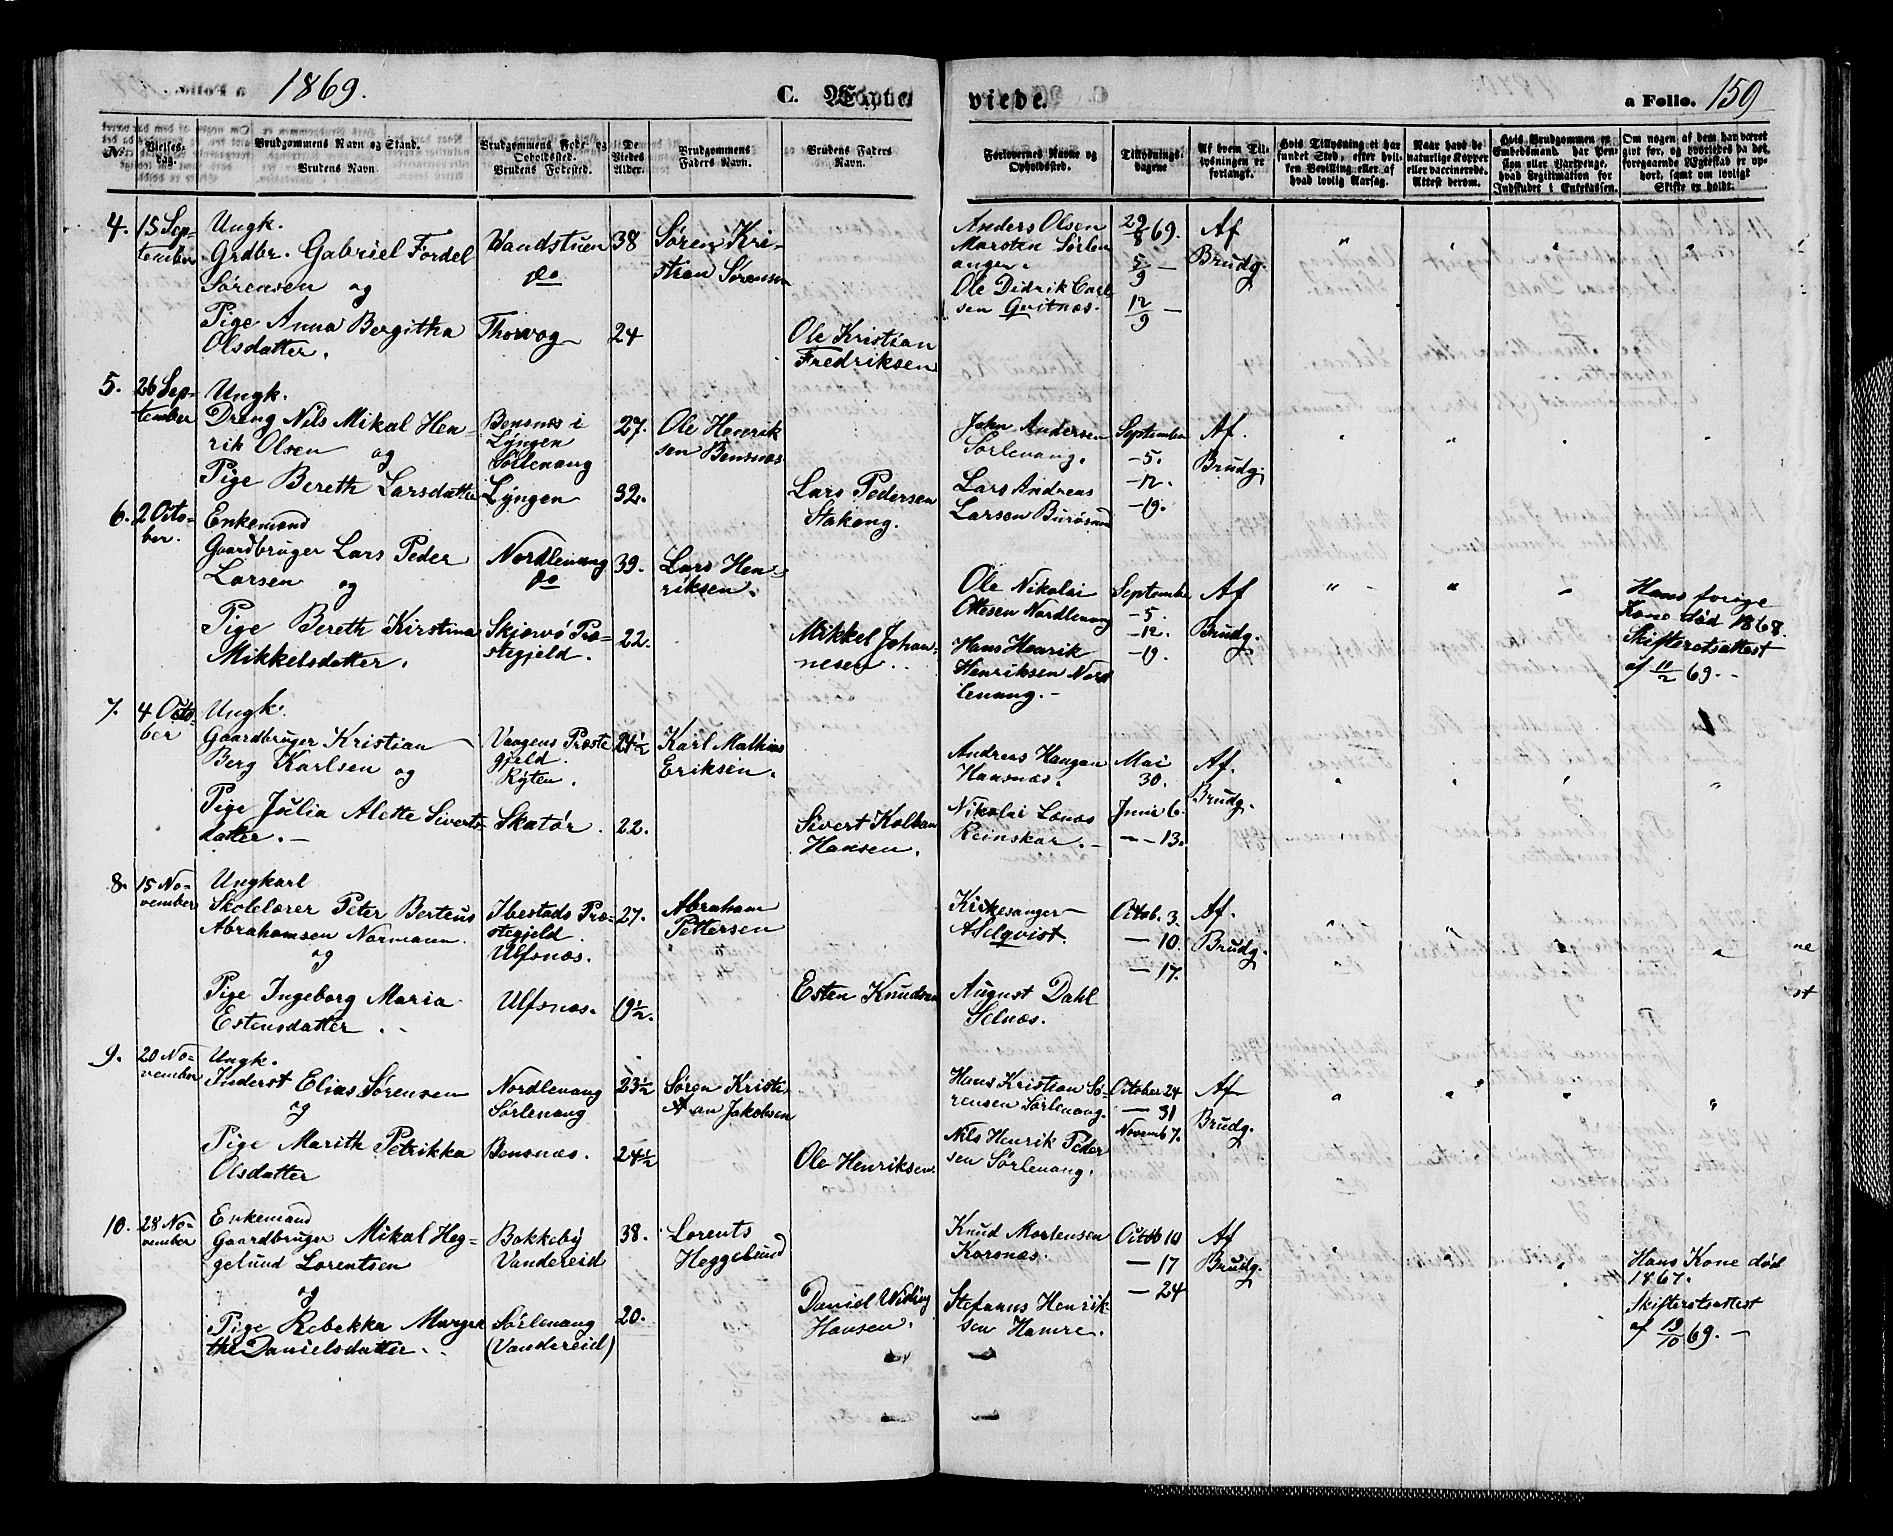 1869.
C. Egte
viede.
a Folio. 159
No.
Vielses-
dag.
Brudgommens Navn og Stand.
Brudens Navn.
Brudgommens Føde- og
Opholdssted.
Brudens Fødested.
De
Viedes
Alder.
Brudgommens
Faders Navn.
Brudens Faders
Navn.
Forlovernes Navne og
Opholdssted.
Tillysnings-
dagene
Af hvem Til-
lysningen er
forlangt.
Hvis Tillysning ei har
fundet Sted, efter hvil-
ken Bevilling eller af
hvad lovlig Aarsag.
Naar havt de
naturlige Kopper
eller vaccinerede.
Attest derom.
Hvis Brudgommen er
Embedsmand, har Pen-
sion eller Vartpenge,
hvad Legitimation for
Indskudet i Enkekassen.
Om nogen af dem har været
gift før, og hvorledes da det
foregaaende Egteskab er op-
hørt, samt om lovligt
Skifte er holdt.
4. 15 Sep-
tember
Ungk.
Grdbr. Gabriel Fordel
Sørensen og
Pige Anna Bergitha
Olsdatter.
Vandstuen
do
Thorvog
38
24
Søren Kri-
stian Sørensen
Ole Kristian
Fredriksen
Anders Olsen
Marsten Sørlen-
angen.
Ole Didrik Carl-
sen Gvitnæs.
29/8 69.
5/9 —
12/9 —
Af
Brudg.
5. 26 Sep-
tember
Ungk.
Dreng Nils Mikal Hen-
rik Olsen og
Pige Bereth Larsdatter
Bensnæs i
Lyngen
Sørlenang
Lyngen
27.
32.
Ole Henrik
sen Bensnæs
Lars Pedersen
Stakong.
John Andersen
Sørlenang.
Lars Andreas
Larsen Burøsund
September
— 5.
— 12.
— 19.
Af
Brudg.
6. 2 Octo-
ber.
Enkemand
Gaardbruger Lars Peder
Larsen og
Pige Bereth Kirstina
Mikkelsdatter.
Nordlenang
do
Skjærvø Præ-
stegjeld.
39.
22.
Lars Hen-
riksen.
Mikkel Johan-
nesen.
Ole Nikolai
Ottesen Nordlenang
Hans Henrik
Henriksen Nord
lenang. —
September
— 5.
— 12.
— 19.
Af
Brudg.
Hans forige
Kone død 1868.
Skifteretsattest
af 11/2 69. —
7. 4 Octo-
ber
Ungk.
Gaardbruger Kristian
Berg Karlsen og
Pige Julia Alette Siverts-
datter. —
Vaagens Præste
gjeld.
Ryten.
Skatør.
24½
22.
Karl Mathias
Eriksen.
Sivert Kolban
Hansen.
Andreas Haugan
Hansnæs.
Nikolai Lønæs
Reinskar. —
Mai
30.
Juni 6.
— 13.
Af
Brudg.
8. 15 No-
vember
Ungkarl
Skolelærer Peter Berteus
Abrahamsen Normann.
og
Pige Ingeborg Maria
Estensdatter.
Ibestads Præ-
stegjeld.
Ulfsnæs.
Ulfsnæs.
27.
19½.
Abraham
Pettersen
Esten Knudsen
Kirkesanger
A Selqvist.
August Dahl
Selnæs.
Octob. 3.
— 10.
— 17.
Af.
Brudg.
9. 20 No-
vember
Ungk.
Inderst Elias Sørensen
og
Pige Marith Petrikka
Olsdatter
Nordlenang
Sørlenang
Bensnæs.
23½
24½
Søren Kristi-
an Jakobsen
Ole Henriksen
Hans Kristian Sø-
rensen Sørlenang.
Nils Henrik Peder
sen Sørlenang.
October 24
— 31
Novemb 7.
Af
Brudg.
10. 28 No-
vember
Enkemand
Gaardbruger Mikal Heg-
gelund Lorentsen
og
Pige Rebekka Margre
the Danielsdatter.
Bakkeby
Vandereid
Sørlenang
(Vandereid)
38.
20.
Lorents
Heggelund
Daniel Wiking
Hansen.
Knud Mortensen
Korsnæs.
Stefanus Henrik-
sen Hamre.
Octob 10
— 17
— 24
Af
Brudg.
Hans Kone død
1867.
Skifteretsattest
af 19/10 69. —